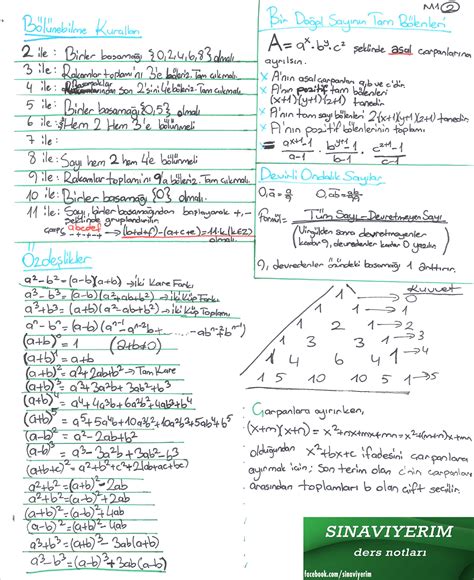 M1 2
Bölünebilme Kuralları
2 ile : Birler basamağı {0,2,4,6,8} olmalı.
3 ile : Rakamlar toplamını 3'e böleriz. Tam çıkmalı.
5 ile : Birler basamağı {0,5} olmalı
6 ile : Hem 2 Hem 3'e bölünmeli
7 ile :
8 ile : Sayı hem 2 hem 4'e bölünmeli
9 ile : Rakamlar toplamını 9'a böleriz. Tam çıkmalı.
10 ile : Birler basamağı {0} olmalı.
11 ile : Sayı, birler basamağından başlayarak +,-
şeklinde gruplandırılır.
abcdef → (b+d+f)-(a+c+e)=11.k (k∈Z)
olmalı.
Özdeşlikler
a²-b² = (a-b)(a+b) → İki Kare Farkı
a³-b³ = (a-b)(a²+ab+b²) → İki Küp Farkı
a³+b³ = (a+b)(a²-ab+b²) → İki Küp Toplamı
(a+b)⁰ = 1 (a+b≠0)
(a+b)¹ = a+b
(a+b)² = a²+2ab+b² → Tam Kare
(a+b)³ = a³+3a²b+3ab²+b³
(a+b)⁴ = a⁴+4a³b+6a²b²+4ab³+b⁴
(a+b)⁵ = a⁵+5a⁴b+10a³b²+10a²b³+5ab⁴+b⁵
(a-b)² = a²-2ab+b²
(a-b)³ = a³-3a²b+3ab²-b³
(a+b+c)² = a²+b²+c²+2(ab+ac+bc)
a²+b² = (a+b)²-2ab
a²+b² = (a-b)²+2ab
(a+b)² = (a-b)²+4ab
(a-b)² = (a+b)²-4ab
a³+b³ = (a+b)³-3ab(a+b)
a³-b³ = (a-b)³+3ab(a-b)
Bir Doğal Sayının Tam Bölenleri
A = aˣ.bʸ.cᶻ şeklinde asal çarpanlarına
ayrılsın.
* A'nın asal çarpanları a,b ve c'dir.
* A'nın pozitif tam bölenleri
(x+1)(y+1)(z+1) tanedir.
* A'nın tam sayı bölenleri 2(x+1)(y+1)(z+1) tanedir
* A'nın pozitif bölenlerinin toplamı
= aˣ⁺¹-1/a-1 . bʸ⁺¹-1/b-1 . cᶻ⁺¹-1/c-1
Devirli Ondalık Sayılar
Formül = Tüm Sayı - Devretmeyen Sayı
(Virgülden sonra devredenler
kadar 9, devredenler kadar 0 yazılır)
9, devredenler önündeki basamağı 1 arttırır.
Kuvvet
1 → 0
1 1 → 1
1 2 1 → 2
1 3 3 1 → 3
1 4 6 4 1
1 5 10 10 5 1 → 5
Çarpanlara ayırırken,
(x+m)(x+n) = x²+nx+mx+mn = x²+(m+n)x+mn
olduğundan x²+bx+c ifadesini çarpanlara
ayırmak için; Son terim olan c'nin çarpanları
arasından toplamları b olan çift seçilir.
SINAVIYERIM
ders notları
facebook.com/sinaviyerim